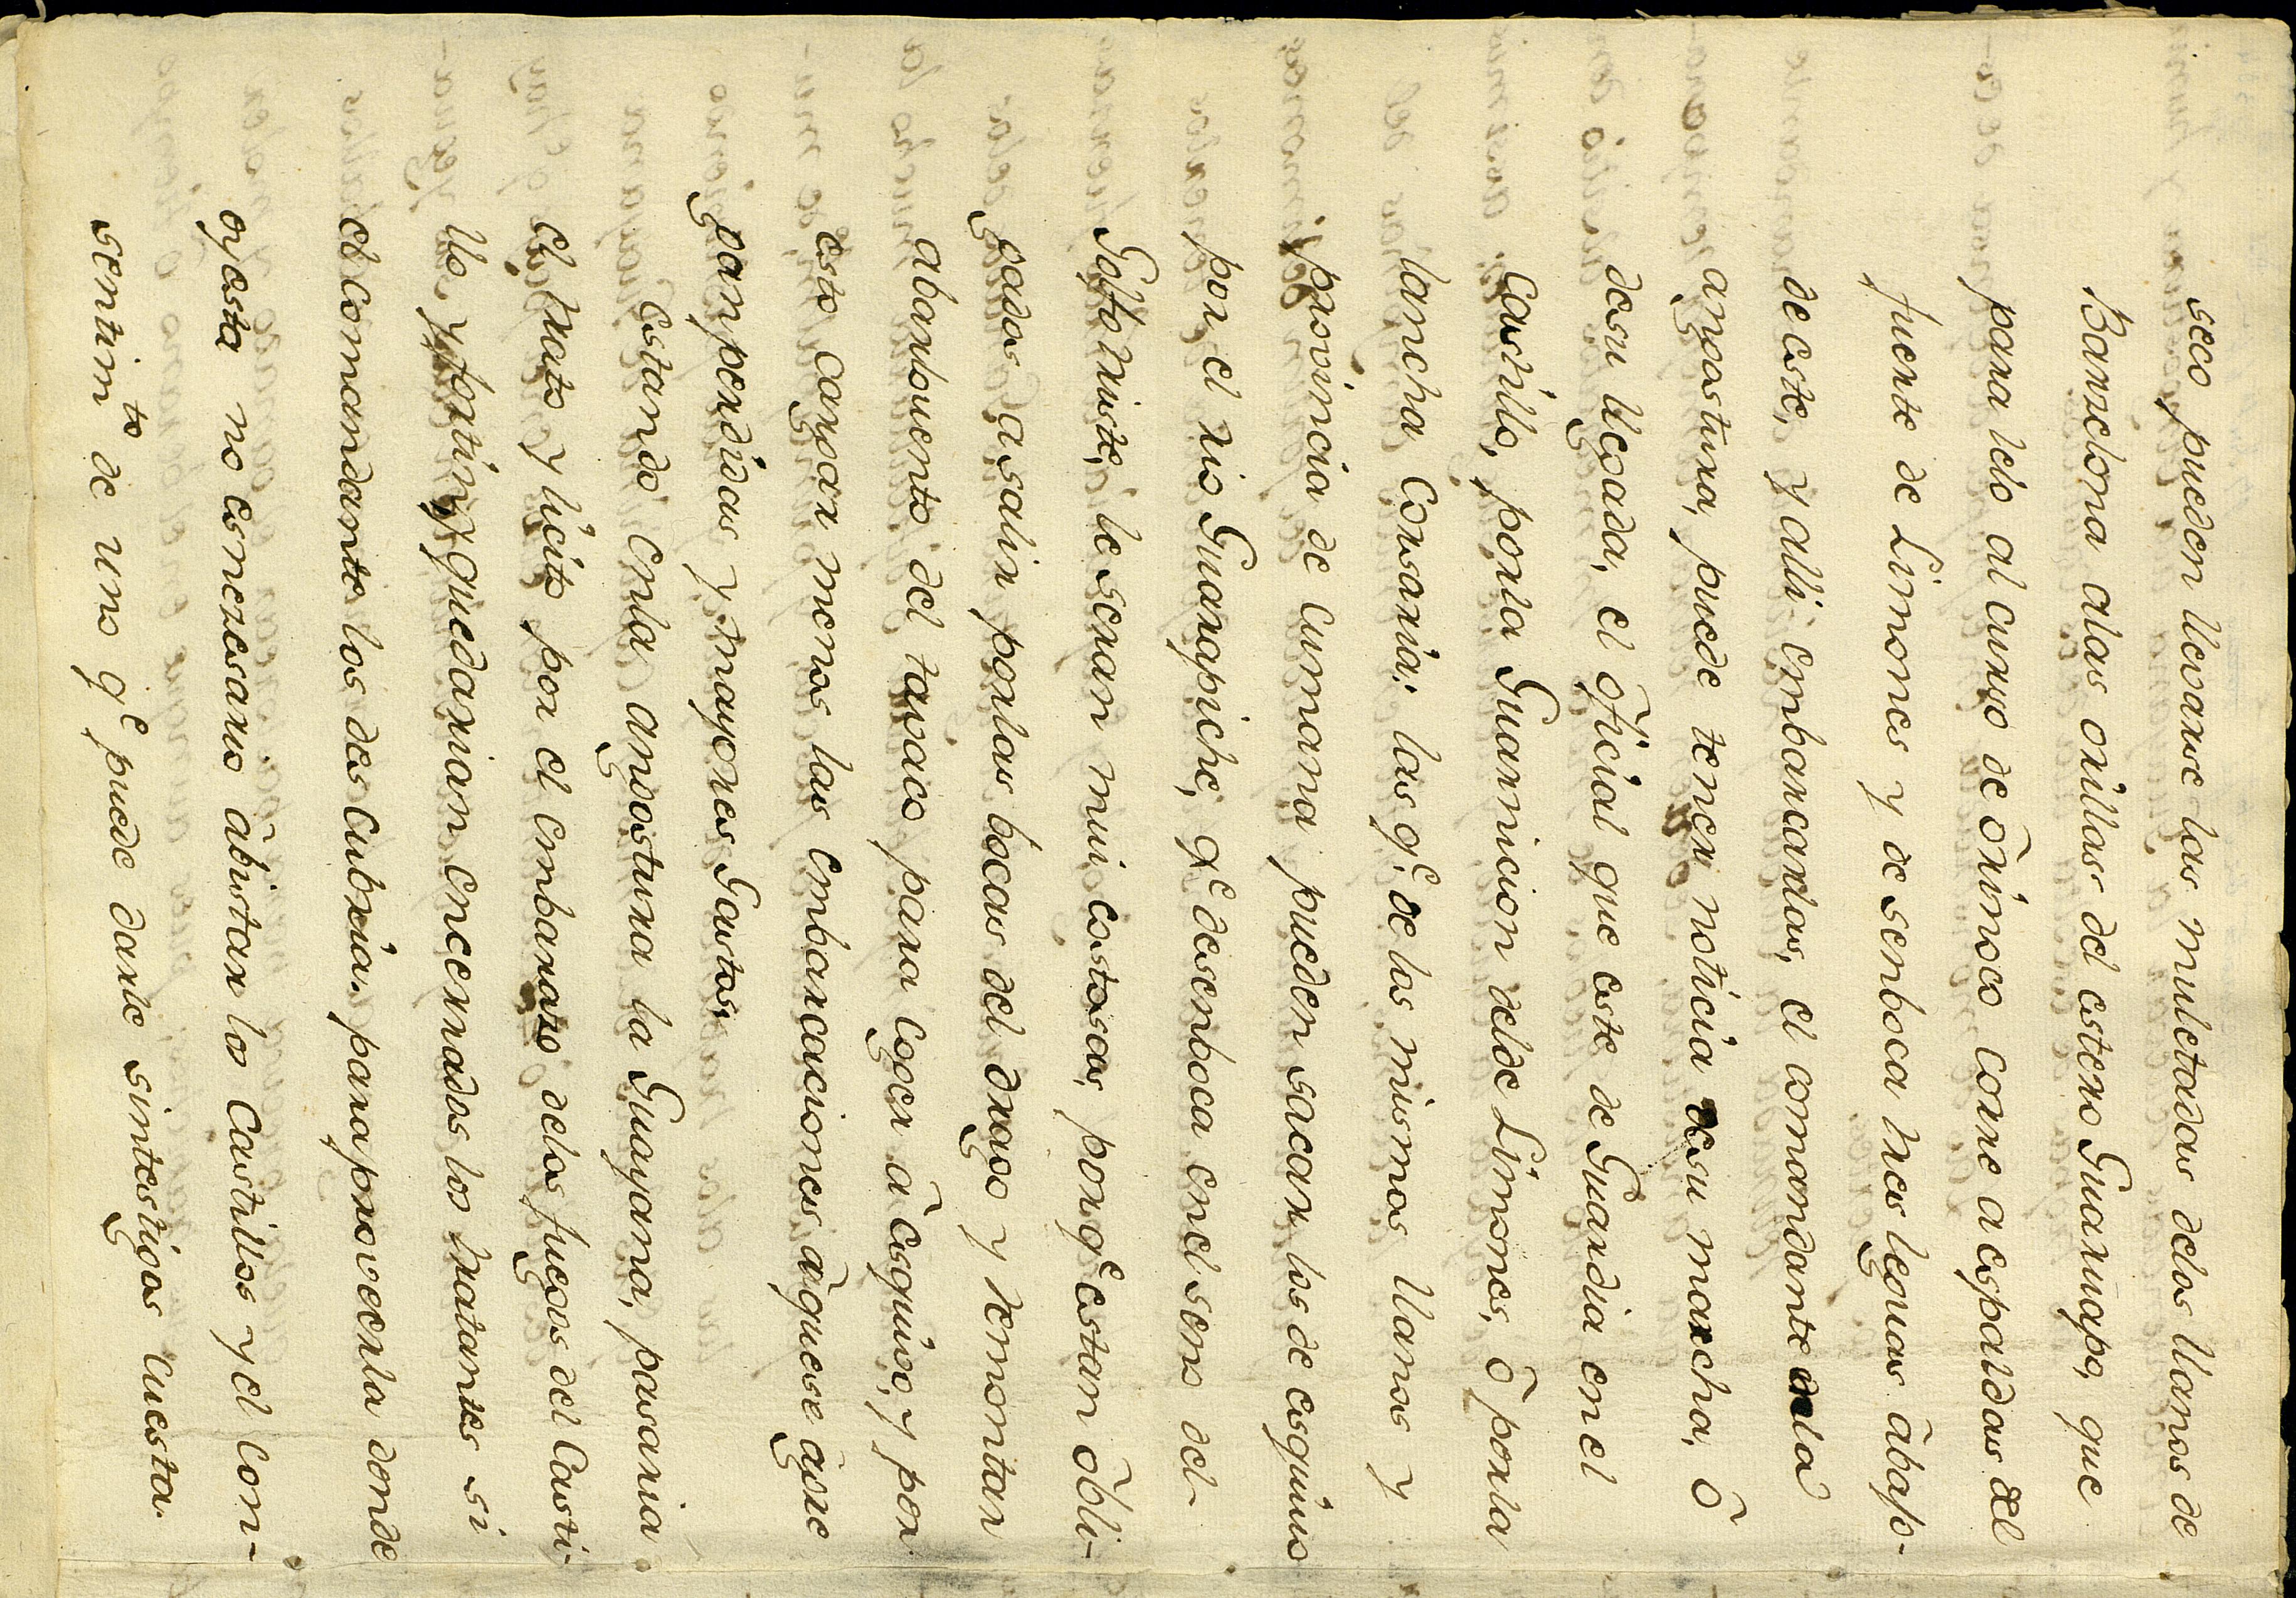 seco pueden llevarse las muletadas delos llanos de
Barzelona alas orillas del estero Guaruapo, que
para lelo al curso de órinoco corre a espaldas del
fuerte de Limones y desenboca tres leguas ábajo
de este, y alli embarcarlas, el comandante enla
angostura, puede tener noticia desu marcha, ó
desu llegada, el óficial que este de Guardia en el
Castillo, porla Guarnicion delde Limones, ó porla
lancha Corsaria; las q.e de los mismos llanos y
provincia de cumana pueden sacar los de esquivo
por el rio Guarapiche, q.e desenboca enel seno del
Golfo triste, le seran mui costosas, porq.e estan óbli-
gados asalir porlas bocas del drago y remontan
abarlovento del tavaco para coger á esquivo, y por
esto cargan menos las embarcaciones áquese ágre
gan perdidas y mayores Gastos.
Estando enla angostura la Guayana, pasaria
el trato y licito por el embarazo delos fuegos del Casti-
llo y fortin, y quedarian encerrados los tratantes si
el comandante los descubria. para proveerla donde
oy esta no es nezesario ábistar los Castillos y el con-
sentim.to de uno q.e puede darle sintestigos cuesta.